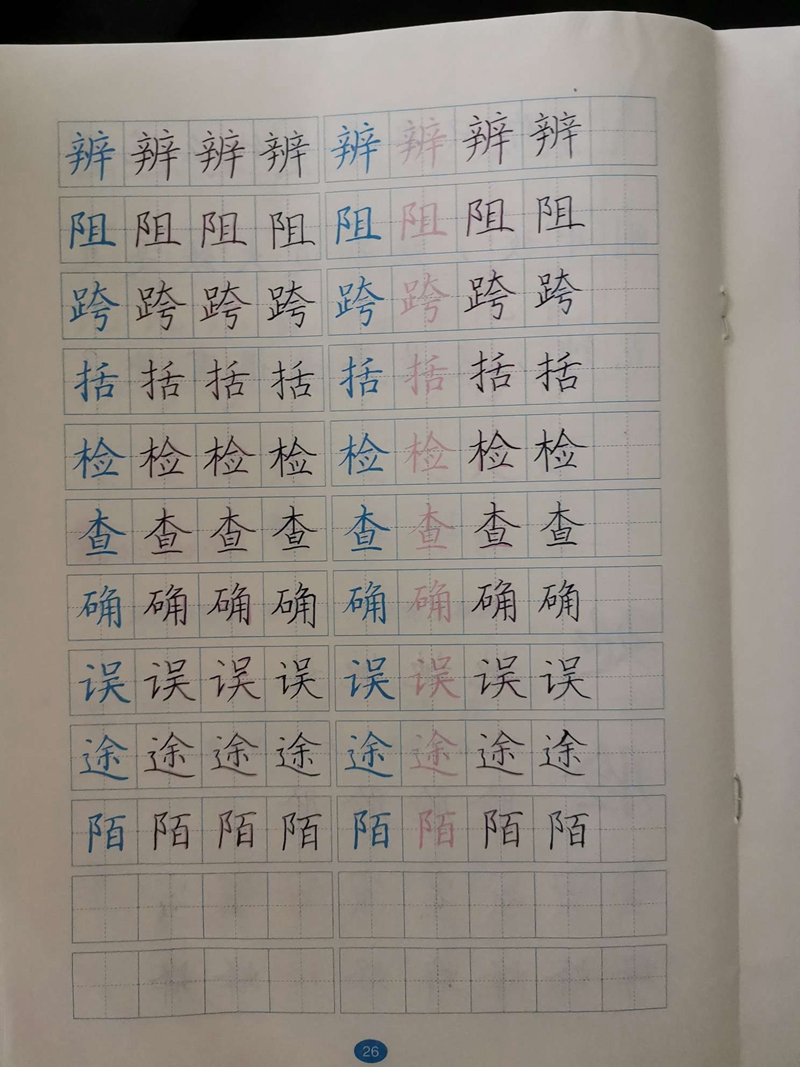 辨辨辨辨辨辨辨辨
阻阻阻阻阻阻阻阻
跨跨跨跨跨跨跨跨
括括括括括括括括
检检检检检检检检
查查查查查查查查
确确确确确确确确
误误误误误误误误
途途途途途途途途
陌陌陌陌陌陌陌陌
26